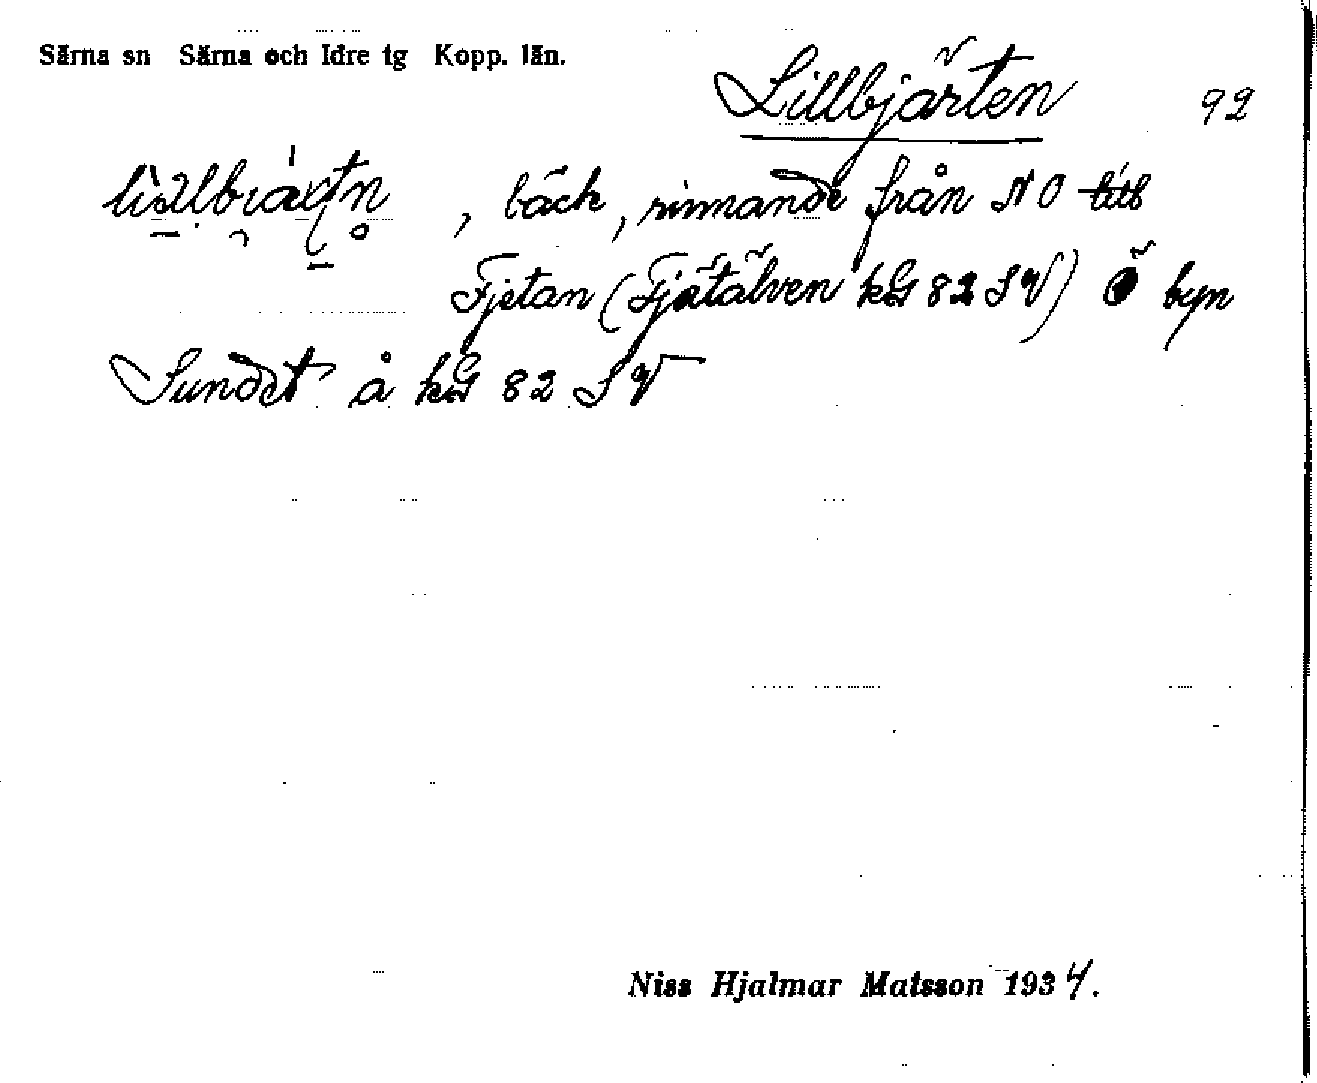 Särna sn Särna och Idre tg Kopp. län.
Lillbjärten 92
, bäck, rinnande från NO till
Fjetan (Fjätälven kbl 82 SV) Ö byn
Sundet å kbl 82 SV
Niss Hjalmar Matsson 1934.